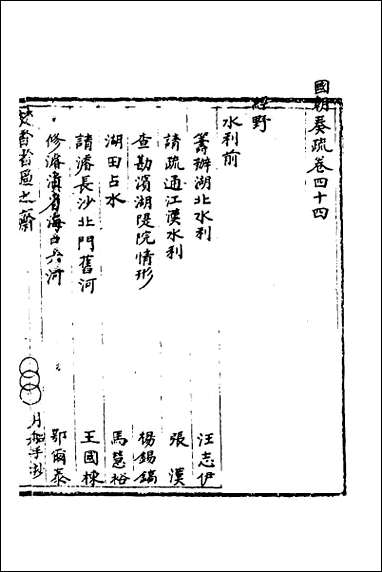 國朝奏疏卷四十四
經野
水利前
籌辦湖北水利 汪志伊
請疏通江漢水利 張漢
查勘濱湖隄院情形 楊錫鏑
湖田占水 馬慧裕
請濬長沙北門舊河 王國棟
修濬滇省海口六河 鄂爾泰
焚香省過之齋 月